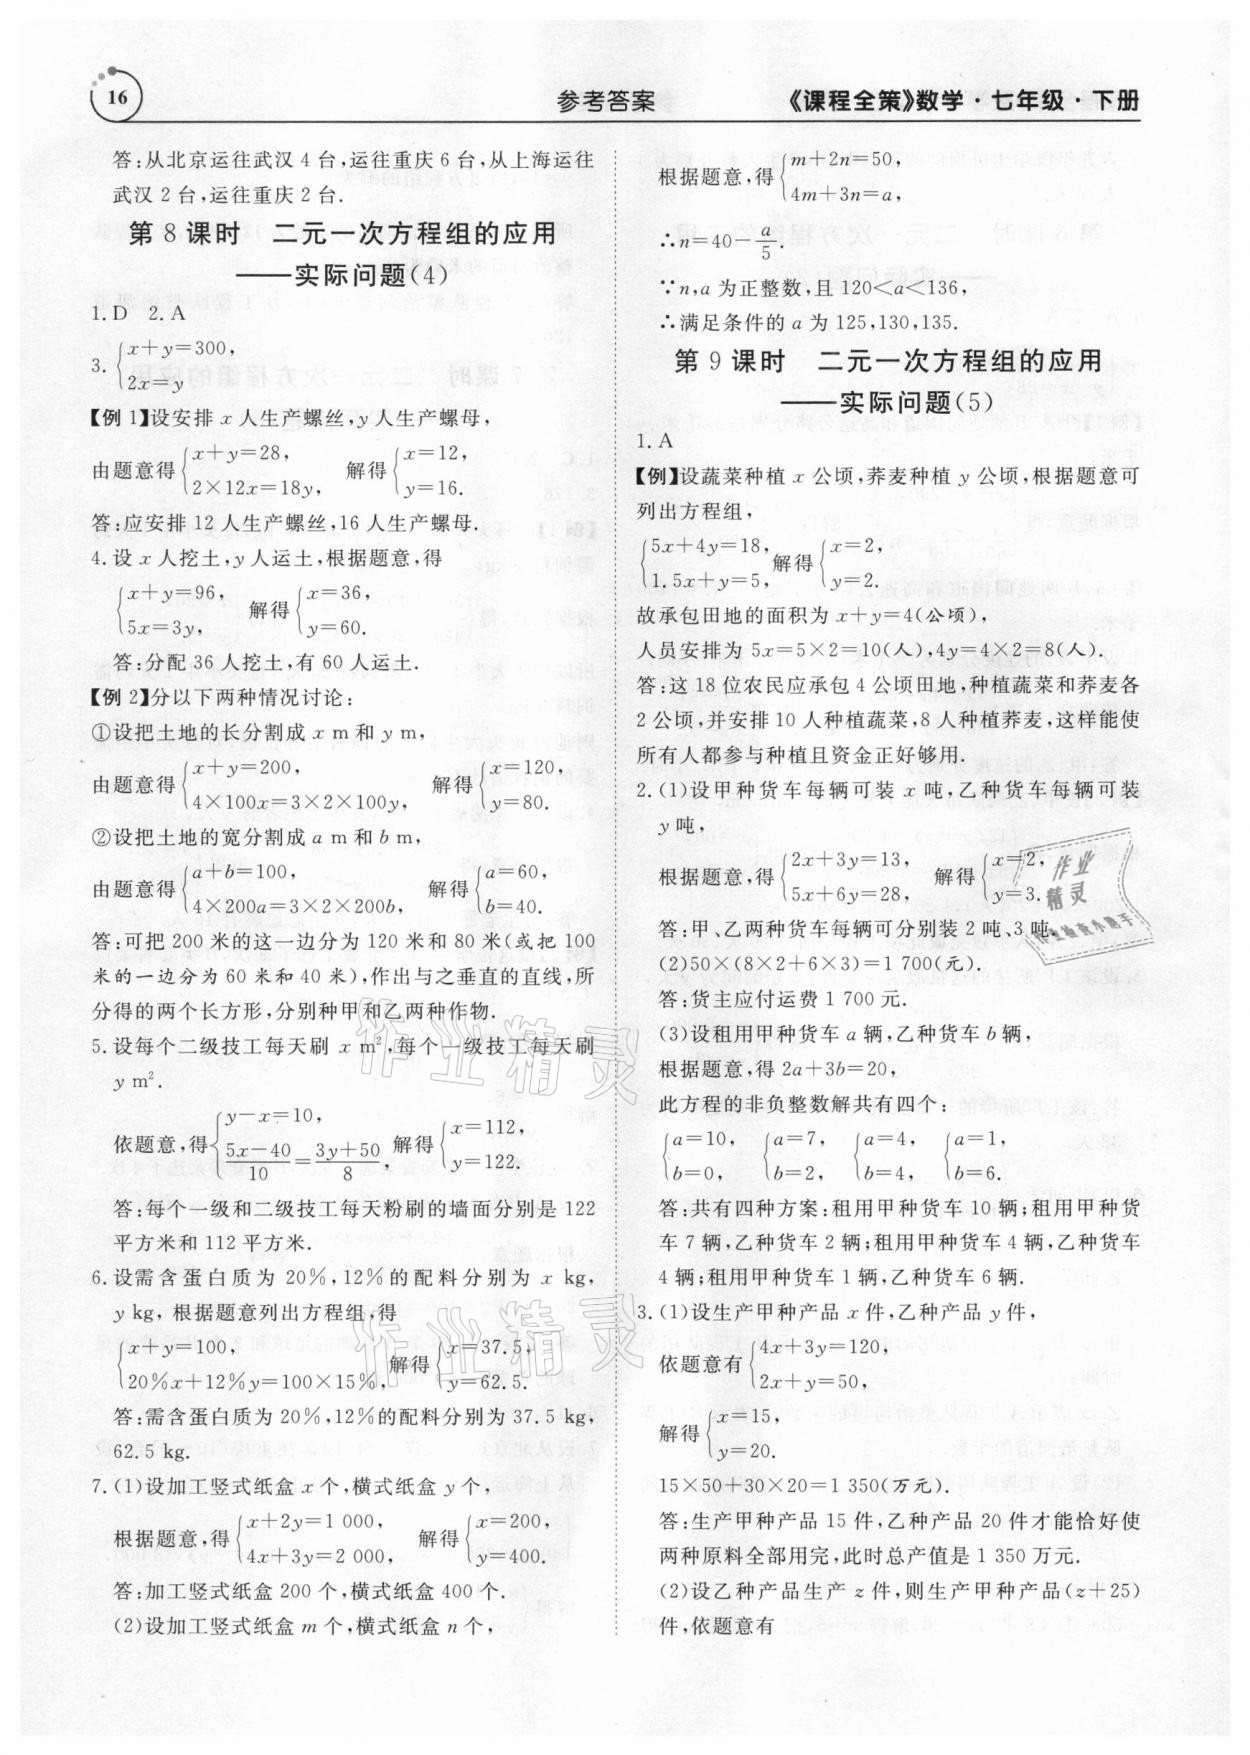 16
参考答案
《课程全策》数学·七年级·下册
答:从北京运往武汉 4 台,运往重庆 6 台,从上海运往
武汉 2 台,运往重庆 2 台.
第 8 课时 二元一次方程组的应用
——实际问题(4)
1.D 2.A
3. { x+y=300,
2x=y
【例 1】设安排 x 人生产螺丝,y 人生产螺母,
由题意得 { x+y=28, 解得 { x=12,
2×12x=18y, y=16.
答:应安排 12 人生产螺丝,16 人生产螺母.
4.设 x 人挖土,y 人运土,根据题意,得
{ x+y=96, 解得 { x=36,
5x=3y, y=60.
答:分配 36 人挖土,有 60 人运土.
【例 2】分以下两种情况讨论:
①设把土地的长分割成 x m 和 y m,
由题意得 { x+y=200, 解得 { x=120,
4×100x=3×2×100y, y=80.
②设把土地的宽分割成 a m 和 b m,
由题意得 { a+b=100, 解得 { a=60,
4×200a=3×2×200b, b=40.
答:可把 200 米的这一边分为 120 米和 80 米(或把 100
米的一边分为 60 米和 40 米),作出与之垂直的直线,所
分得的两个长方形,分别种甲和乙两种作物.
5.设每个二级技工每天刷 x m²,每个一级技工每天刷
y m².
依题意,得 { y−x=10, 解得 { x=112,
(5x−40)/10=(3y+50)/8, y=122.
答:每个一级和二级技工每天粉刷的墙面分别是 122
平方米和 112 平方米.
6.设需含蛋白质为 20%,12%的配料分别为 x kg,
y kg,根据题意列出方程组,得
{ x+y=100, 解得 { x=37.5,
20%x+12%y=100×15%, y=62.5.
答:需含蛋白质为 20%,12%的配料分别为 37.5 kg,
62.5 kg.
7.(1)设加工竖式纸盒 x 个,横式纸盒 y 个,
根据题意,得 { x+2y=1 000, 解得 { x=200,
4x+3y=2 000, y=400.
答:加工竖式纸盒 200 个,横式纸盒 400 个.
(2)设加工竖式纸盒 m 个,横式纸盒 n 个,
根据题意,得 { m+2n=50,
4m+3n=a,
∴n=40−a/5.
∵n,a 为正整数,且 120<a<136,
∴满足条件的 a 为 125,130,135.
第 9 课时 二元一次方程组的应用
——实际问题(5)
1.A
【例】设蔬菜种植 x 公顷,荞麦种植 y 公顷,根据题意可
列出方程组,
{ 5x+4y=18, 解得 { x=2,
1.5x+y=5, y=2.
故承包田地的面积为 x+y=4(公顷),
人员安排为 5x=5×2=10(人),4y=4×2=8(人).
答:这 18 位农民应承包 4 公顷田地,种植蔬菜和荞麦各
2 公顷,并安排 10 人种植蔬菜,8 人种植荞麦,这样能使
所有人都参与种植且资金正好够用.
2.(1)设甲种货车每辆可装 x 吨,乙种货车每辆可装
y 吨,
根据题意,得 { 2x+3y=13, 解得 { x=2,
5x+6y=28, y=3.
答:甲、乙两种货车每辆可分别装 2 吨、3 吨.
(2)50×(8×2+6×3)=1 700(元).
答:货主应付运费 1 700 元.
(3)设租用甲种货车 a 辆,乙种货车 b 辆,
根据题意,得 2a+3b=20,
此方程的非负整数解共有四个:
{ a=10, { a=7, { a=4, { a=1,
b=0, b=2, b=4, b=6.
答:共有四种方案:租用甲种货车 10 辆;租用甲种货
车 7 辆,乙种货车 2 辆;租用甲种货车 4 辆,乙种货车
4 辆;租用甲种货车 1 辆,乙种货车 6 辆.
3.(1)设生产甲种产品 x 件,乙种产品 y 件,
依题意有 { 4x+3y=120,
2x+y=50,
解得 { x=15,
y=20.
15×50+30×20=1 350(万元).
答:生产甲种产品 15 件,乙种产品 20 件才能恰好使
两种原料全部用完,此时总产值是 1 350 万元.
(2)设乙种产品生产 z 件,则生产甲种产品(z+25)
件,依题意有
作业精灵
作业精灵
作业
精灵